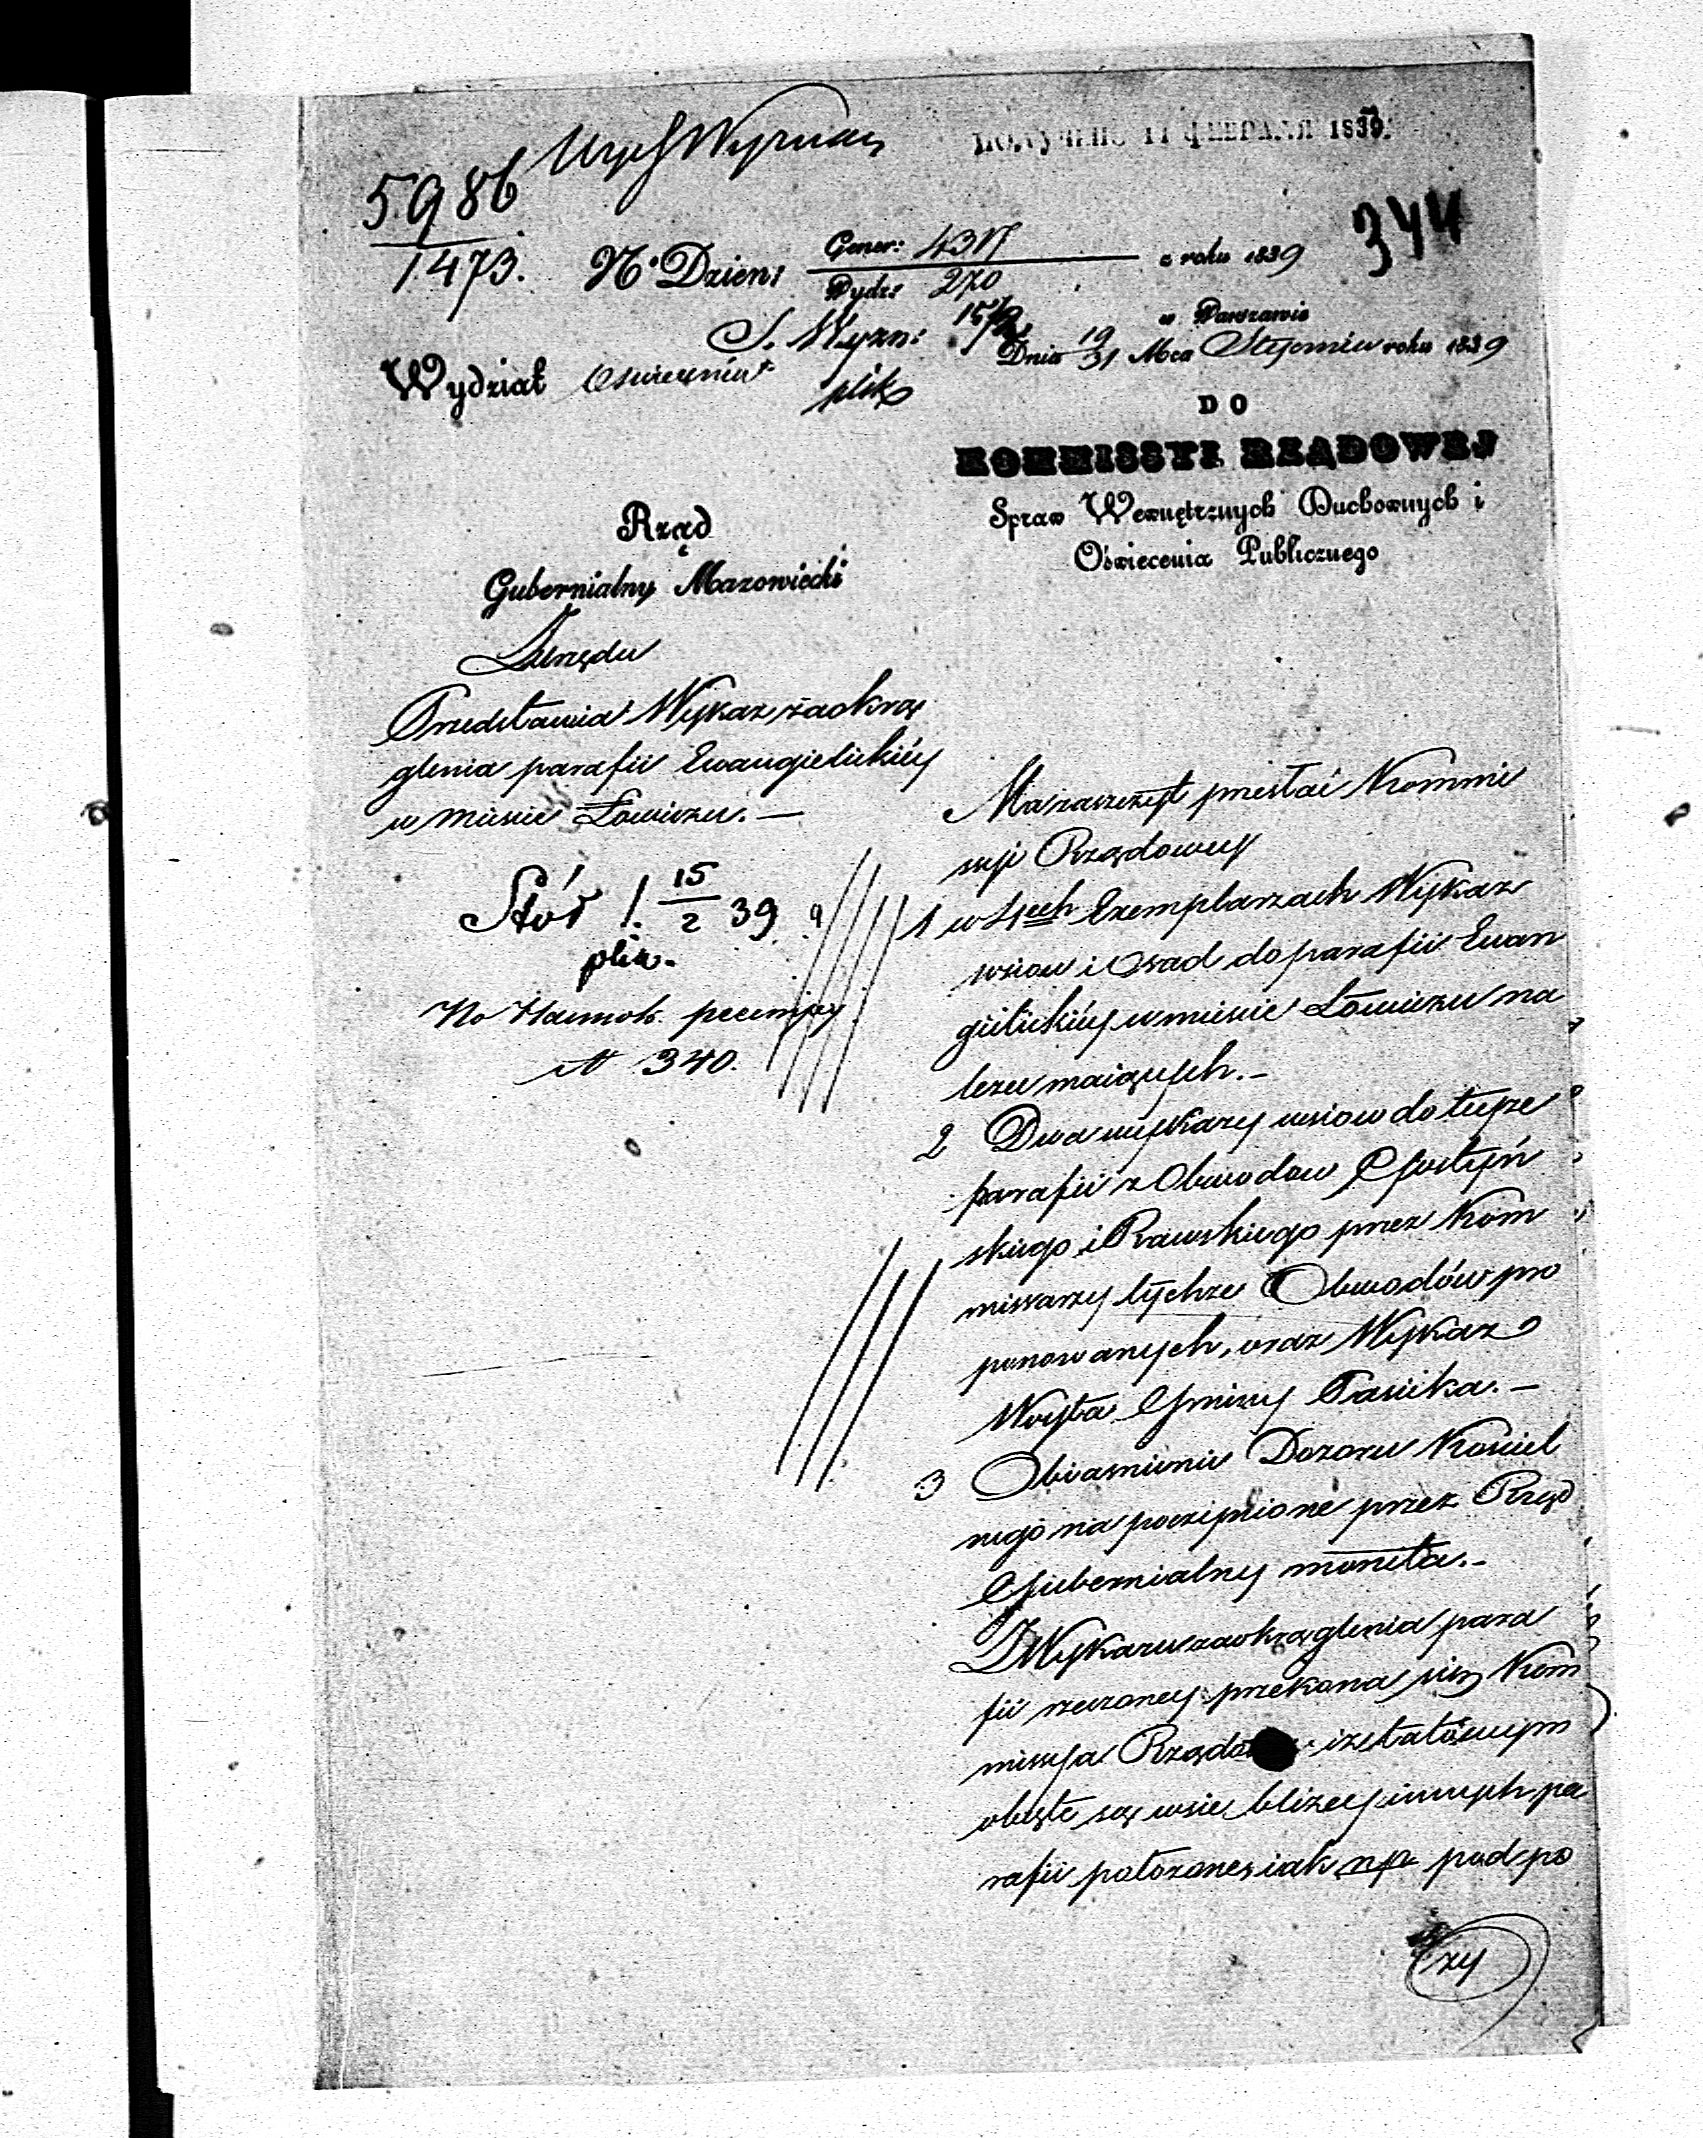 ПОЛУЧЕНО 11 ФЕВРАЛЯ 1839.
5986
1473.
344
No. Dzien: Gener: 4317 z roku 1839
Wydz: 270
S. Wyzn: 15/2
w Warszawie
Dnia 19/31 Mca Stycznia roku 1839
Wydział Oswiecenia
plik
DO
KOMMISSYI RZĄDOWEJ
Spraw Wewnętrznych Duchownych i
Oświecenia Publicznego
Rząd
Gubernialny Mazowiecki
Zurzędu
Przedstawia Wykaz zaokrą
glenia parafii Ewangielickiéy
w miescie Łowiczu. —
15/2 39
No 340.
Ma zaszczyt przesłać Kommi
ssyi Rządowey
1 w 4ech Exemplarzach Wykaz
wsiow i Osad do parafii Ewan
gielickiéy w miescie Łowiczu na
lezeć maiących. –
2 Dwa wykazy wsiow do teyże
parafii z Obwodow Gostyń
skiego i Rawskiego przez Kom
missarzy tychze Obwodów pro
ponowanych, oraz Wykaz
Woyta Gminy Łasieka. –
3 Obiasnienie Dozoru Kościel
nego na poczynione przez Rząd
Gubernialny moneta. –
Z Wykazu zaokrąglenia para
fii rzeczoney przekona się Kom
missya Rządowa iż tatowym
obięte są wsie bliżey innych pa
rafii położone, iak np pod po
zy